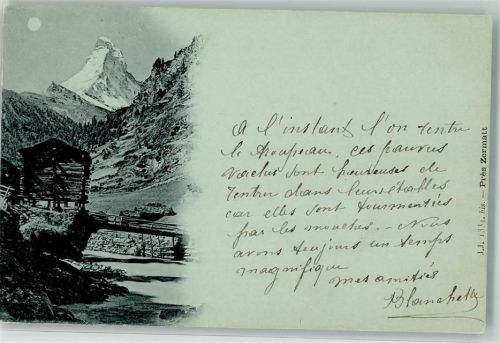 A l'instant l'on rentre
le troupeau. ces pauvres
vaches sont heureuses de
rentrer dans leurs étables
car elles sont tourmentées
par les mouches. - Nous
avons toujours un temps
magnifique
mes amitiés
Blanchette
J.J. bis. — Près Zermatt